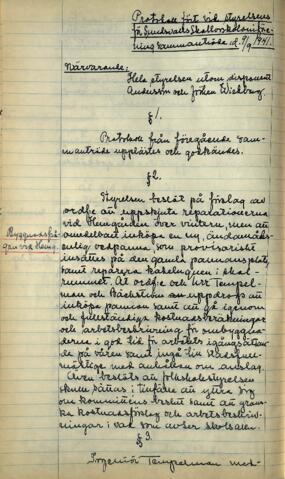 Protokoll fört vid styrelsens
för Sundsvalls Skollovskoloniföre-
ning sammanträde d. 9/9 1941.
Närvarande:
Hela styrelsen utom disponent
Andersson och fröken Wickberg.
§ 1.
Protokoll från föregående sam-
manträde upplästes och godkändes.
§ 2.
Styrelsen beslöt på förslag av
ordf:e att uppskjuta reparationerna
vid Hemgården över vintern, men att
omedelbart inköpa en ny, ändamåls-
enlig vedpanna som provisoriskt
insättes på den gamla pannans plats,
samt reparera kakelugnen i skol-
rummet. Åt ordf:e och herr Tempel-
man och Bäckström uppdrogs att
inköpa pannan samt att gå igenom
och fullständiga kostnadsberäkningar
och arbetsbeskrivning för ombyggna-
derna i god tid för arbetets igångsättan-
de på våren samt ingå till Stadsfull-
mäktige med anhållan om anslag.
Även beslöts att folkskolestyrelsen
skulle sättas i tillfälle att yttra sig
om kommitténs beslut samt att gran-
ska kostnadsförslag och arbetsbeskriv-
ningar i vad som avser skolsalen.
Byggnadsfrå-
gan vid Hemg.
§ 3.
Ingeniör Tempelman med-